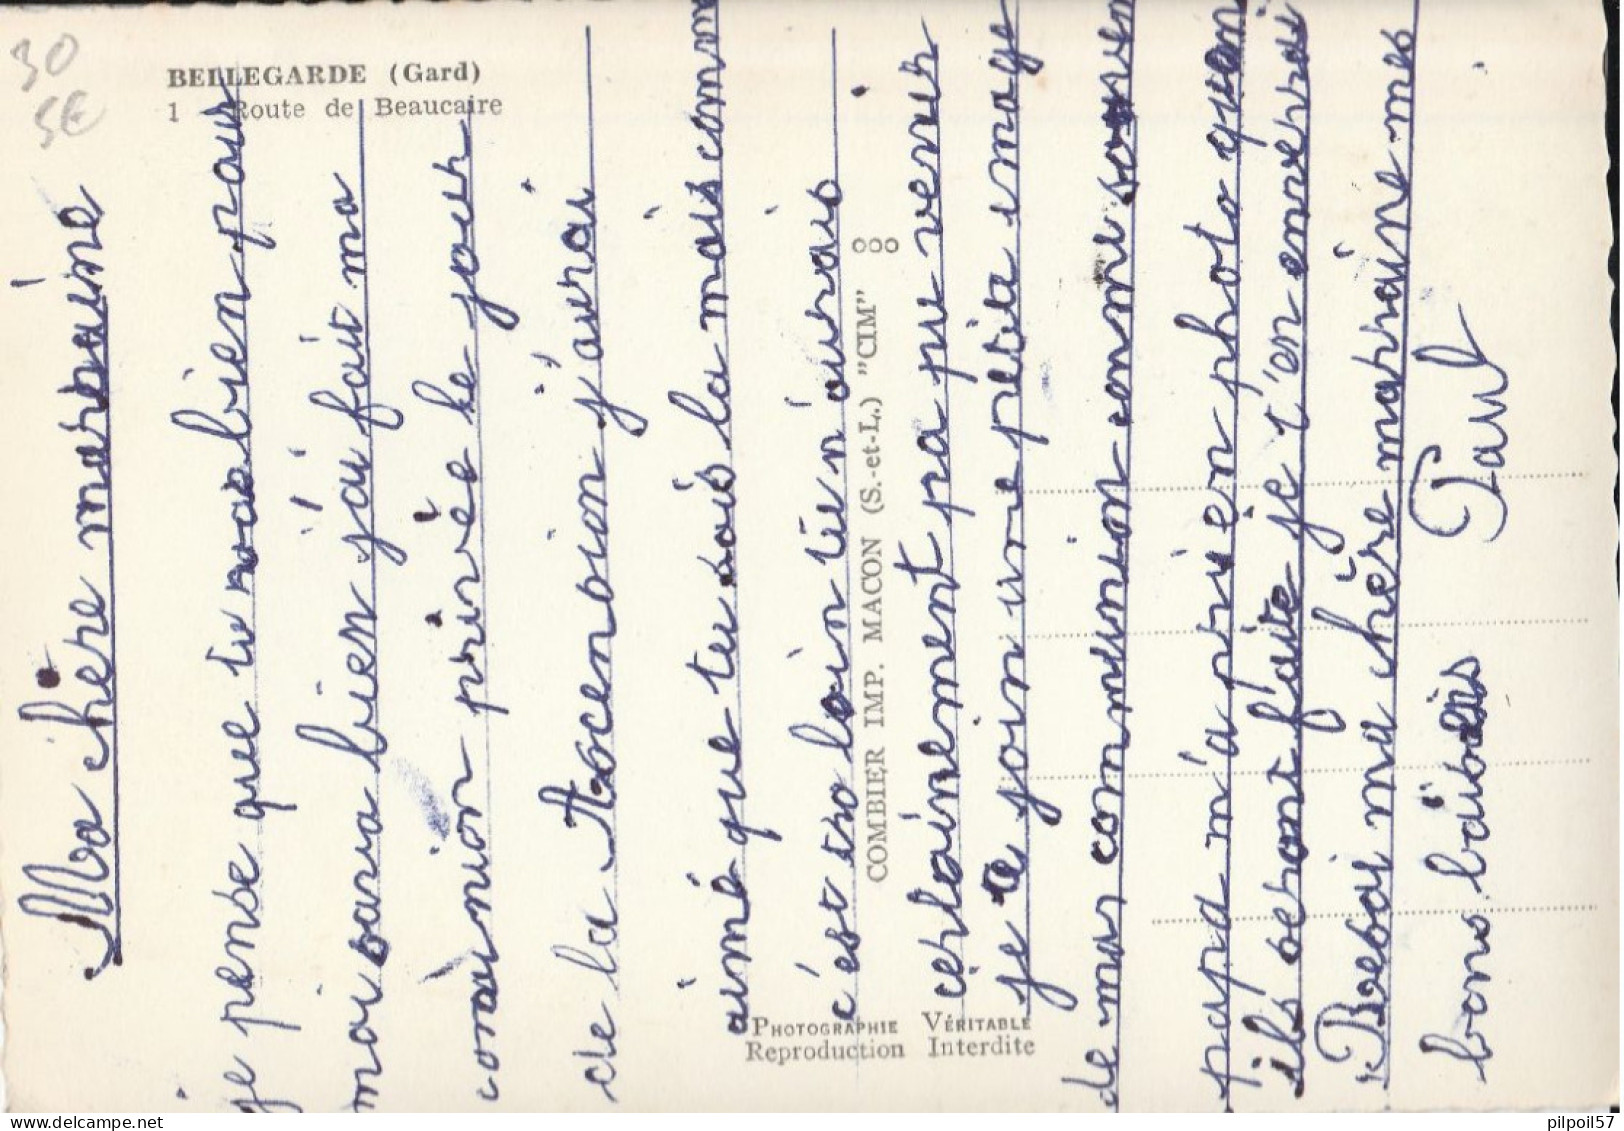 30
5€
BELLEGARDE (Gard)
1 - Route de Beaucaire
Ma chère marraine
je pense que tu vas bien pour
moi sava bien j'ai fait ma
comunion privée le jour
de la Ascenсion j'aurai
aimé que tu sois la mais comme
c'est tro loin tu n'aurais
certainement pa pu venir
je te join une petite image
de mas communion comme souven
papa m'a pri en photo quan
ils seront faite je t'en enverrai
Besoi ma chère marraine mes
bons baibais Paul
COMBIER IMP. MACON (S.-et-L.) "CIM"
PHOTOGRAPHIE VÉRITABLE
Reproduction Interdite
delcampe.net
pilpoil57